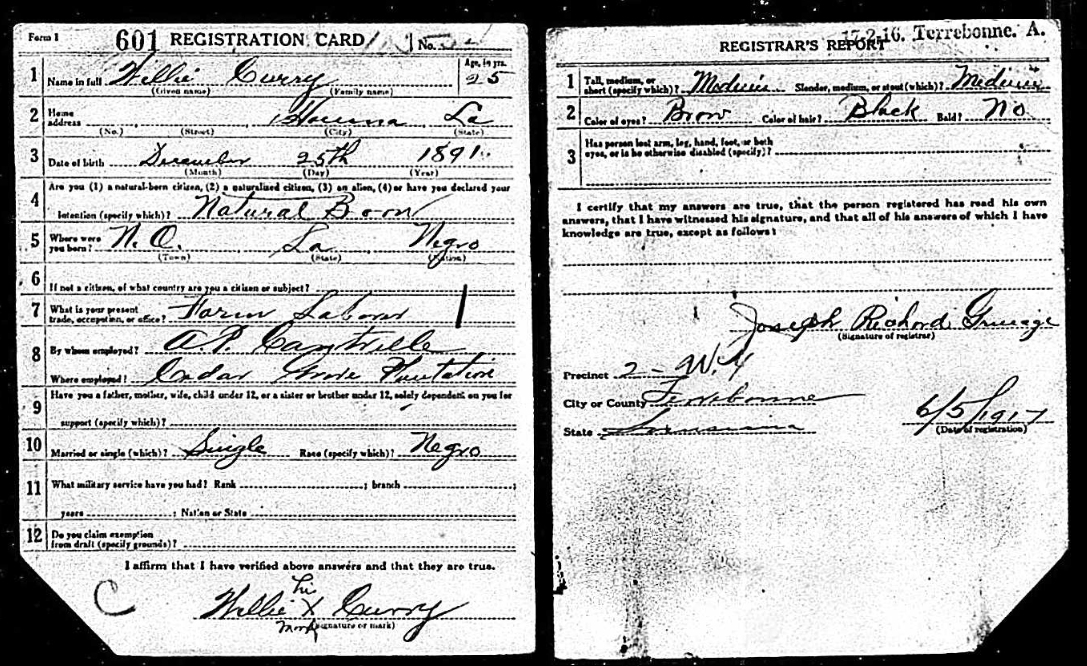 Form 1 601 REGISTRATION CARD No.
1 Name in full Willie Curry Age, in yrs. 25
(Given name) (Family name)
2 Home address Houma La
(No.) (Street) (City) (State)
3 Date of birth December 25th 1891
(Month) (Day) (Year)
4 Are you (1) a natural-born citizen, (2) a naturalized citizen, (3) an alien, (4) or have you declared your
intention (specify which)? Natural Born
5 Where were you born? N. O. La Negro
(Town) (State) (Nation)
6 If not a citizen, of what country are you a citizen or subject?
7 What is your present trade, occupation, or office? Farm Labor
8 By whom employed? A.P.
Where employed? Cedar Grove Plantation
9 Have you a father, mother, wife, child under 12, or a sister or brother under 12, solely dependent on you for
support (specify which)?
10 Married or single (which)? Single Race (specify which)? Negro
11 What military service have you had? Rank ; branch ;
years ; Nation or State
12 Do you claim exemption from draft (specify grounds)?
I affirm that I have verified above answers and that they are true.
C
his
Willie X Curry
mark (Signature or mark)
17-2-16. Terrebonne. A.
REGISTRAR'S REPORT
1 Tall, medium, or short (specify which)? Medium Slender, medium, or stout (which)? Medium
2 Color of eyes? Brow Color of hair? Black Bald? No
3 Has person lost arm, leg, hand, foot, or both
eyes, or is he otherwise disabled (specify)?
I certify that my answers are true, that the person registered has read his own
answers, that I have witnessed his signature, and that all of his answers of which I have
knowledge are true, except as follows:
Joseph Richard
(Signature of registrar)
Precinct 2 - W 4
City or County Terrebonne
State Louisiana
6/5/1917
(Date of registration)